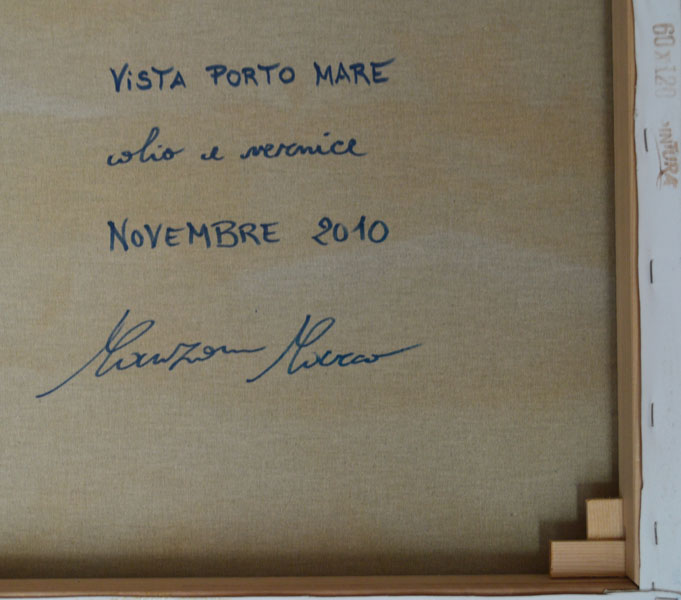 VISTA PORTO MARE
olio e vernice
NOVEMBRE 2010
Manzoni Marco
60 x 120